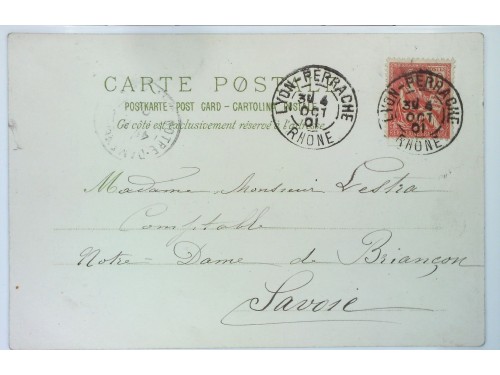 CARTE POSTALE
POSTKARTE - POST CARD - CARTOLINA
Ce côté est exclusivement réservé à l'adresse
LYON-PERRACHE
3U 4
OCT
01
RHONE
LYON-PERRACHE
3U 4
OCT
01
RHONE
Madame Monsieur Lestra
Comptable
Notre-Dame de Briançon
Savoie